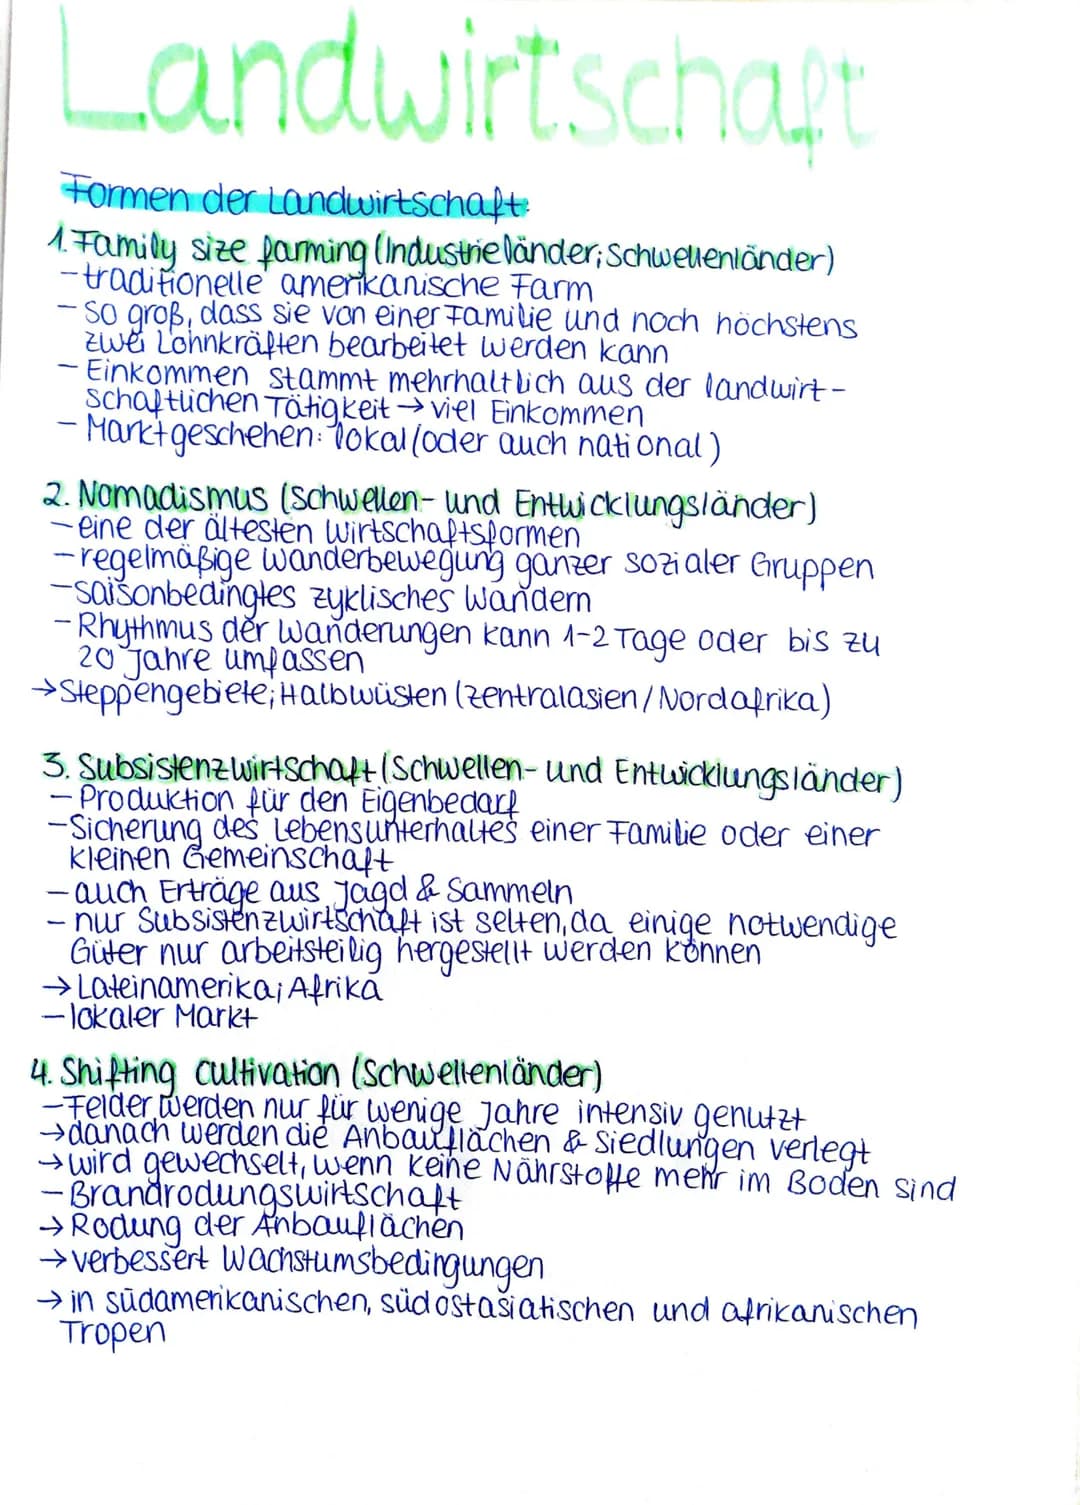 Landwirtschaft
Formen der Landwirtschaft:
1. Family size farming (Industrieländer; Schwellenländer)
- traditionelle amerikanische Farm
- so groß, dass sie von einer Familie und noch höchstens
zwei Lohnkräften bearbeitet werden kann
- Einkommen stammt mehrhaltlich aus der landwirt-
schaftlichen Tätigkeit → viel Einkommen
- Marktgeschehen: lokal (oder auch national)
2. Nomadismus (Schwellen- und Entwicklungsländer)
- eine der ältesten Wirtschaftsformen
- regelmäßige Wanderbewegung ganzer sozialer Gruppen
- saisonbedingtes zyklisches Wandern
- Rhythmus der Wanderungen kann 1-2 Tage oder bis zu
20 Jahre umfassen
→ Steppengebiete; Halbwüsten (Zentralasien / Nordafrika)
3. Subsistenzwirtschaft (Schwellen- und Entwicklungsländer)
- Produktion für den Eigenbedarf
- Sicherung des Lebensunterhaltes einer Familie oder einer
kleinen Gemeinschaft
- auch Erträge aus Jagd & Sammeln
- nur Subsistenzwirtschaft ist selten, da einige notwendige
Güter nur arbeitsteilig hergestellt werden können
→ Lateinamerika; Afrika
- lokaler Markt
4. Shifting cultivation (Schwellenländer)
- Felder werden nur für wenige Jahre intensiv genutzt
→ danach werden die Anbauflächen & Siedlungen verlegt
→ wird gewechselt, wenn keine Nährstoffe mehr im Boden sind
- Brandrodungswirtschaft
→ Rodung der Anbauflächen
→ verbessert Wachstumsbedingungen
→ in südamerikanischen, südostasiatischen und afrikanischen
Tropen